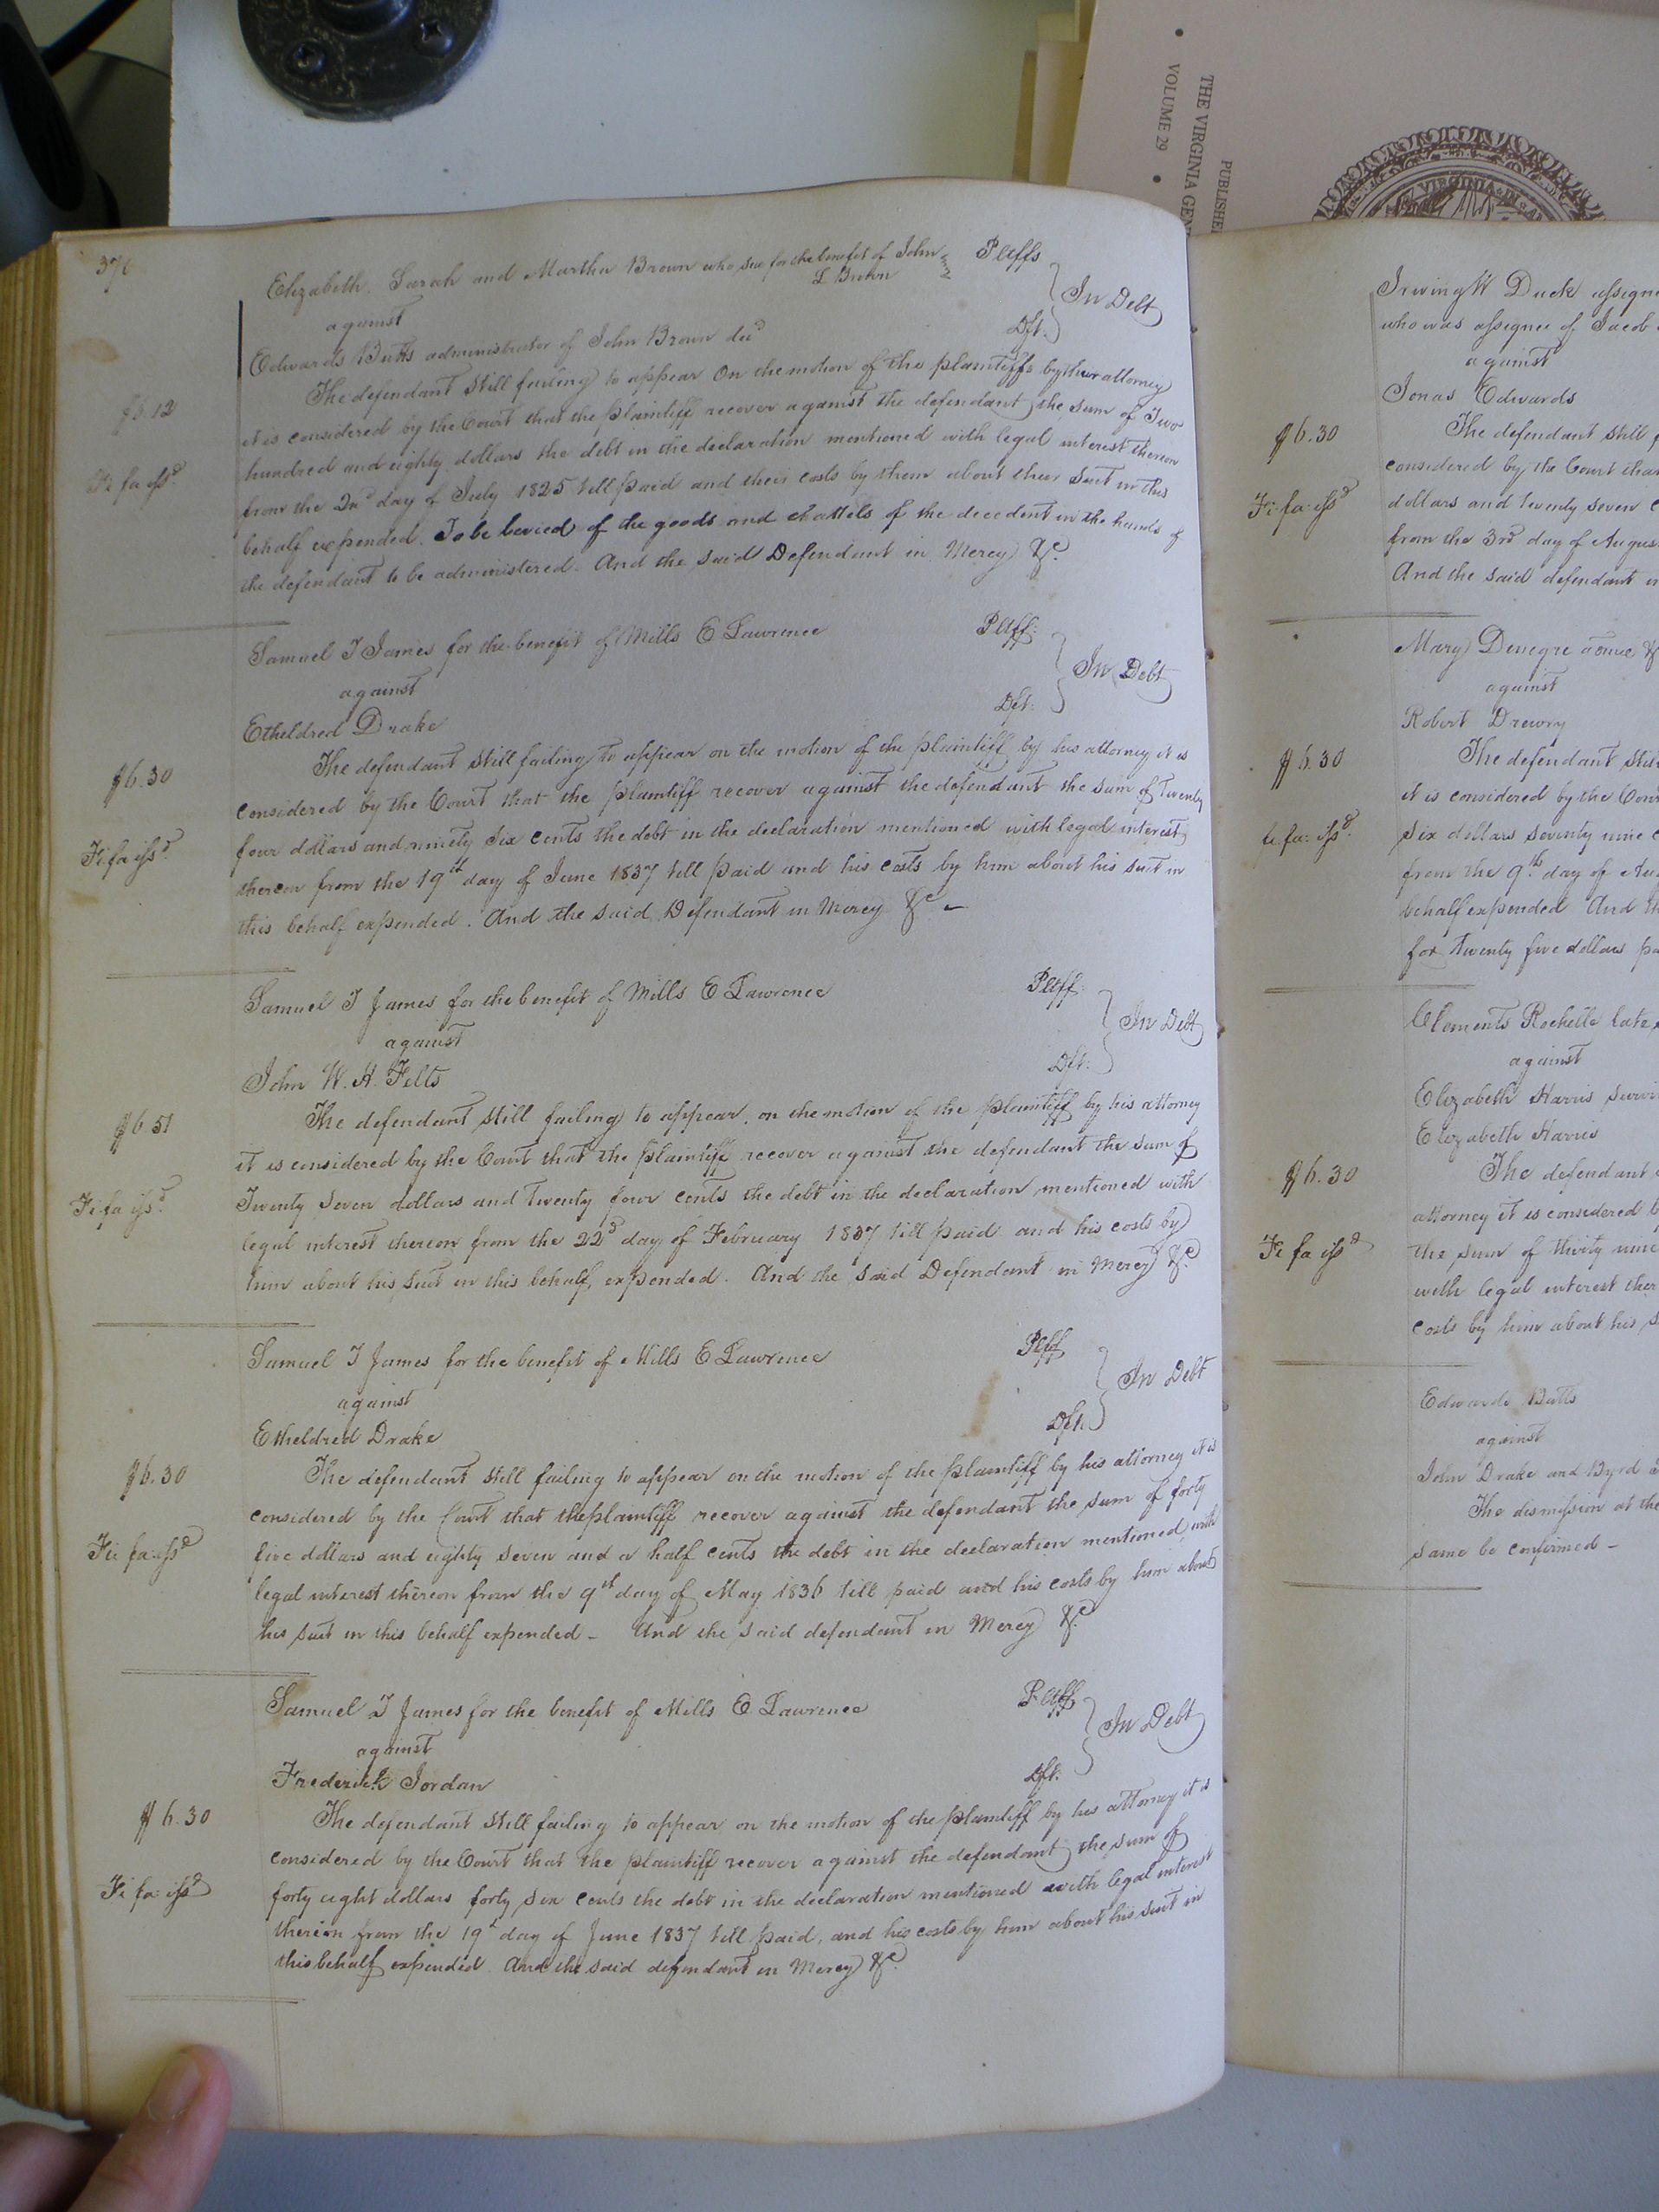 THE VIRGINIA GE
VOLUME 29
PUBLISHE
VIRGINIA
37
Elizabeth, Sarah and Martha Brown who sue for the benefit of John Plffs
L. Brown
against In Debt
Edwards Butts administrator of John Brown decd Dft.
The defendant still failing to appear On the motion of the plaintiffs by their attorney
$6.12 it is considered by the Court that the plaintiff recover against the defendant the sum of Two
hundred and eighty dollars the debt in the declaration mentioned with legal interest thereon
Fi fa issd from the 2nd day of July 1825 till paid and their costs by them about their suit in this
behalf expended. To be levied of the goods and chattels of the decedent in the hands of
the defendant to be administered. And the said Defendant in Mercy &c.
Samuel T James for the benefit of Mills E Lawrence Plff.
against In Debt
Etheldred Drake Dft.
The defendant still failing to appear on the motion of the plaintiff by his attorney it is
$6.30 considered by the Court that the plaintiff recover against the defendant the sum of Twenty
four dollars and ninety six cents the debt in the declaration mentioned with legal interest
Fi fa issd. thereon from the 19th day of June 1837 till paid and his costs by him about his suit in
this behalf expended. And the said Defendant in Mercy &c –
Samuel T James for the benefit of Mills E Lawrence Plff.
against In Debt
John W. H. Felts Dft.
The defendant still failing to appear, on the motion of the plaintiff by his attorney
$6 51 it is considered by the Court that the plaintiff recover against the defendant the sum of
Twenty seven dollars and Twenty four cents the debt in the declaration mentioned with
Fi fa issd. legal interest thereon from the 22d day of February 1837 till paid and his costs by
him about his suit in this behalf, expended. And the said Defendant in Mercy &c
Samuel T James for the benefit of Mills E Lawrence Plff
against In Debt
Etheldred Drake Dft.
The defendant still failing to appear on the motion of the plaintiff by his attorney it is
$6.30 considered by the Court that the plaintiff recover against the defendant the sum of forty
five dollars and eighty seven and a half cents the debt in the declaration mentioned with
Fi fa issd legal interest thereon from the 9th day of May 1836 till paid and his costs by him about
his suit in this behalf expended – And the said defendant in Mercy &c.
Samuel T James for the benefit of Mills E Lawrence Plff
against In Debt
Frederick Jordan Dft.
The defendant still failing to appear on the motion of the plaintiff by his attorney it is
$6.30 considered by the Court that the plaintiff recover against the defendant the sum of
forty eight dollars forty six cents the debt in the declaration mentioned with legal interest
Fi fa issd thereon from the 19th day of June 1837 till paid, and his costs by him about his suit in
this behalf expended. And the said defendant in Mercy &c.
Irving W Duck assigne
who was assignee of Jacob
against
Jonas Edwards
$6.30 The defendant still f
considered by the Court that
Fi fa issd dollars and twenty seven c
from the 3rd day of Augus
And the said defendant in
Mary Denegre &
against
Robert Drewry
$6.30 The defendant still
it is considered by the Cour
fi fa issd. six dollars seventy nine c
from the 9th day of Au
behalf expended And th
for Twenty five dollars pa
Clements Rochelle late
against
Elizabeth Harris surviv
Elizabeth Harris
$6.30 The defendant
attorney it is considered b
Fi fa issd the sum of thirty nine
with legal interest ther
costs by him about his s
Edwards Butts
against
John Drake and Byrd
The dismission at the
same be confirmed –